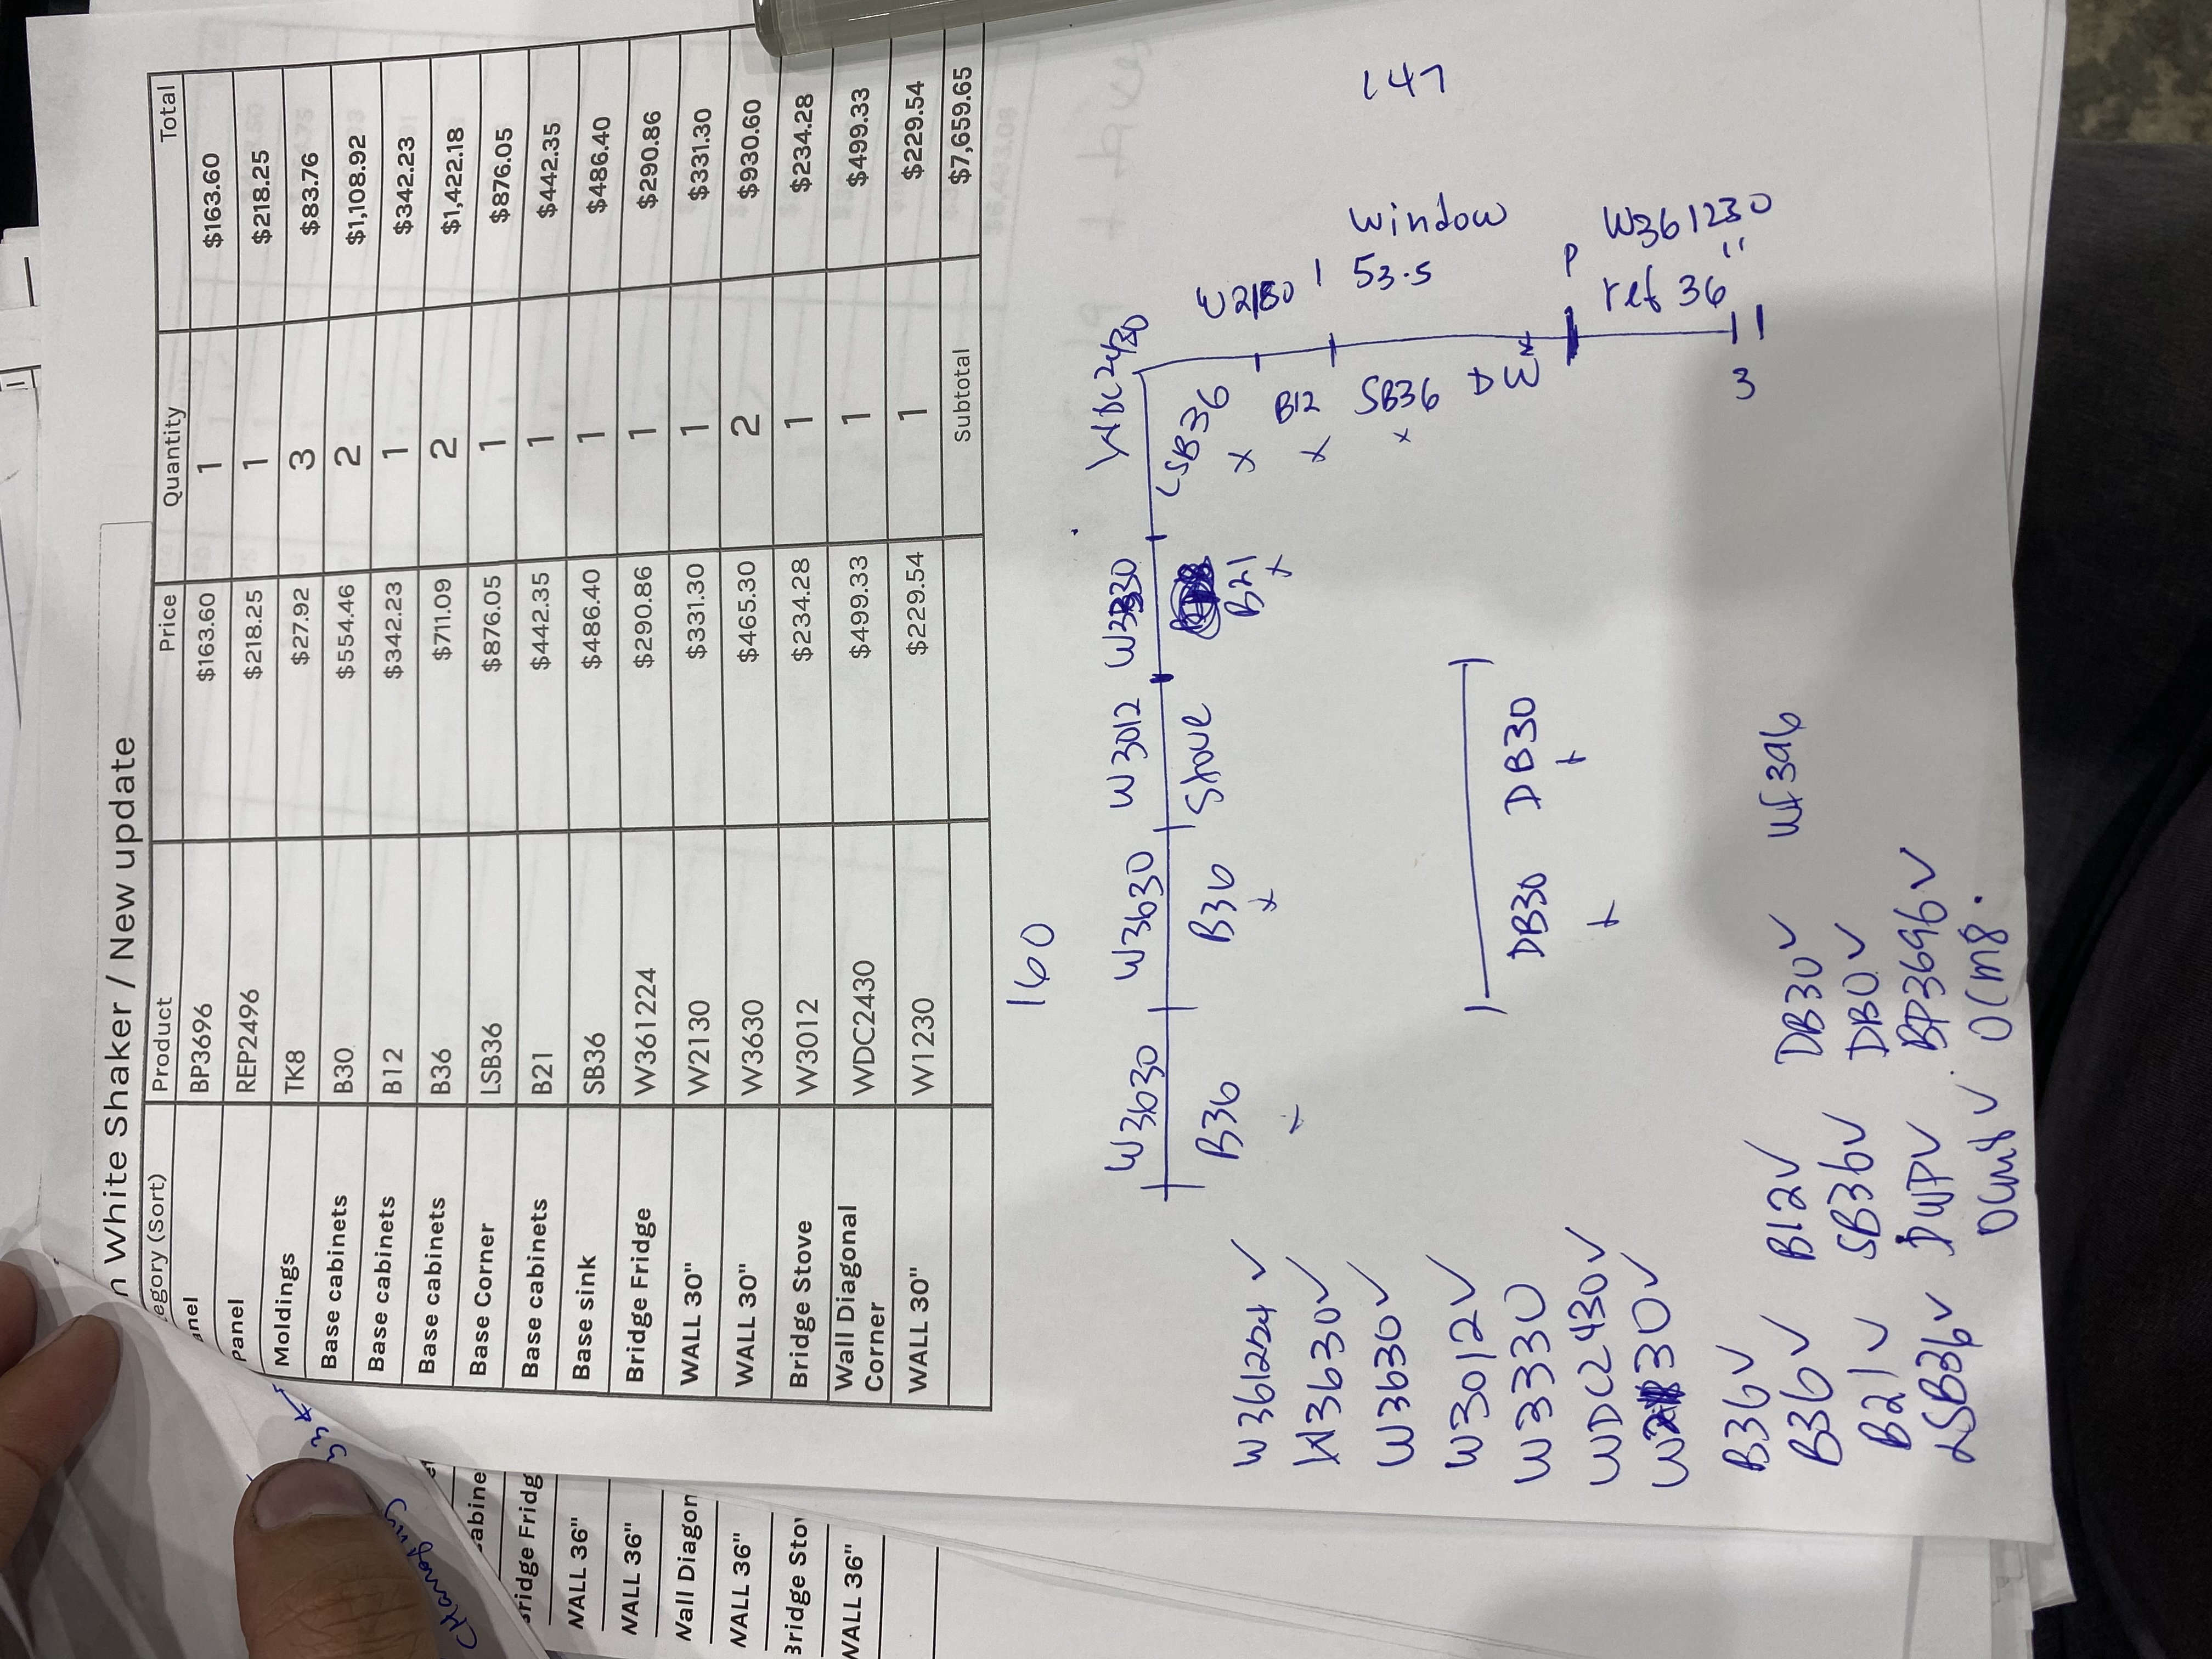 n White Shaker / New update
egory (Sort) Product Price Quantity Total
anel BP3696 $163.60 1 $163.60
Panel REP2496 $218.25 1 $218.25
Moldings TK8 $27.92 3 $83.76
Base cabinets B30 $554.46 2 $1,108.92
Base cabinets B12 $342.23 1 $342.23
Base cabinets B36 $711.09 2 $1,422.18
Base Corner LSB36 $876.05 1 $876.05
Base cabinets B21 $442.35 1 $442.35
Base sink SB36 $486.40 1 $486.40
Bridge Fridge W361224 $290.86 1 $290.86
WALL 30" W2130 $331.30 1 $331.30
WALL 30" W3630 $465.30 2 $930.60
Bridge Stove W3012 $234.28 1 $234.28
Wall Diagonal Corner WDC2430 $499.33 1 $499.33
WALL 30" W1230 $229.54 1 $229.54
Subtotal $7,659.65
160
W3630 W3630 W3012 W3330 WDC2430
B36 B36 Stove B21 LSB36
x x x x
W2130 window
53.5
P W361230
ref 36"
B12 SB36 DW
x x
3
147
DB30 DB30
x x
W361224 ✓
W3630 ✓
W3630 ✓
W3012 ✓
W3330
WDC2430 ✓
B36 ✓ B12 ✓ DB30 ✓ WF396
B36 ✓ SB36 ✓ DB30 ✓
B21 ✓ DWP ✓ BP3696 ✓
LSB36 ✓ OCM8 ✓ OCM8.
abine
Bridge Fridg
WALL 36"
WALL 36"
Wall Diagon
WALL 36"
Bridge Sto
WALL 36"